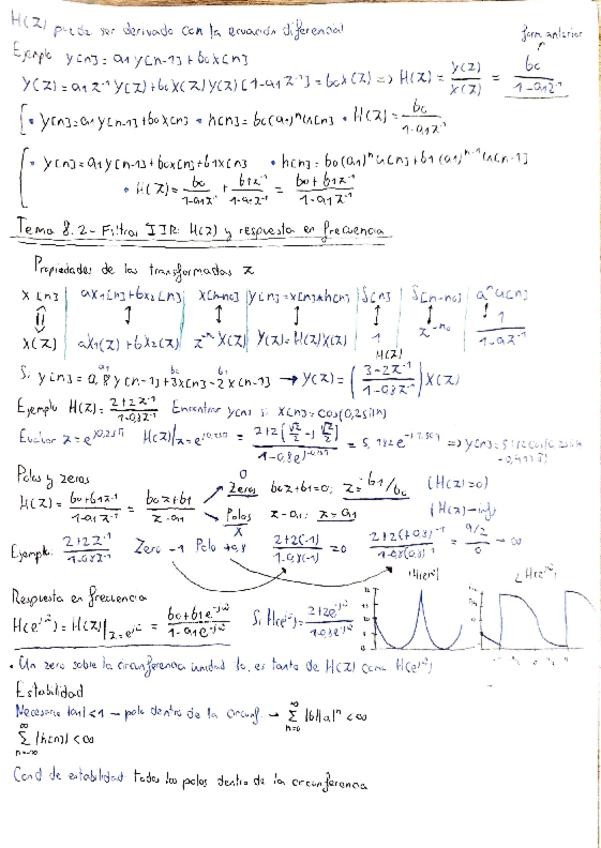 H(z) puede ser derivado con la ecuación diferencial
forma anterior
Ejemplo y[n]=a1 y[n-1]+b0x[n]
Y(z)=a1 z^-1 Y(z)+b0X(z) Y(z)[1-a1z^-1]=b0x(z) => H(z) = Y(z)/X(z) = b0/(1-a1z^-1)
• y[n]=a1y[n-1]+b0x[n] • h[n]=b0(a1)^n u[n] • H(z)=b0/(1-a1z^-1)
• y[n]=a1y[n-1]+b0x[n]+b1x[n] • h[n]=b0(a1)^n u[n]+b1(a1)^n-1 u[n-1]
• H(z)=b0/(1-a1z^-1) + b1z^-1/(1-a1z^-1) = (b0+b1z^-1)/(1-a1z^-1)
Tema 8.2-Filtros IIR: H(z) y respuesta en frecuencia
Propiedades de las transformadas z
x[n] | ax1[n]+bx2[n] | x[n-n0] | y[n]=x[n]*h[n] | δ[n] | δ[n-n0] | a^n u[n]
X(z) | aX1(z)+bX2(z) | z^-n0 X(z) | Y(z)=H(z)X(z) | 1 | z^-n0 | 1/(1-az^-1)
a1 b0 b1 H(z)
Si y[n]=0,8y[n-1]+3x[n]-2x[n-1] → Y(z)=((3-2z^-1)/(1-0,8z^-1))X(z)
Ejemplo H(z)=(2+2z^-1)/(1-0,8z^-1) Encontrar y[n] si x[n]=cos(0,25πn)
Evaluar z=e^j0,25π H(z)|z=e^j0,25π = 2+2(√2/2-j√2/2)/(1-0,8e^-j0,25π) = 5,182e => y[n]=5,182cos(0,25πn
Polos y zeros
H(z)=(b0+b1z^-1)/(1-a1z^-1) = (b0z+b1)/(z-a1)
O Zeros b0z+b1=0; z=-b1/b0 (H(z)=0)
Polos z-a1: z=a1 (H(z)→inf)
X
Ejemplo: (2+2z^-1)/(1-0,8z^-1) Zero -1 Polo +0,8 (2+2(-1))/(1-0,8(-1))=0 (2+2(+0,8)^-1)/(1-0,8(0,8)^-1) = (9/2)/0 → ∞
|H(e^jŵ)| ∠H(e^jŵ)
Respuesta en frecuencia
H(e^jŵ)=H(z)|z=e^jŵ = (b0+b1e^-jŵ)/(1-a1e^-jŵ) Si H(e^jŵ)=(2+2e^-jŵ)/(1-0,8e^-jŵ)
• Un zero sobre la circunferencia unidad lo es tanto de H(z) como H(e^jŵ)
Estabilidad
Necesario |a1|<1 → polo dentro de la circunf → ∑n=0^∞ |b||a|^n <∞
∑n=-∞^∞ |h[n]| <∞
Cond de estabilidad todos los polos dentro de la circunferencia